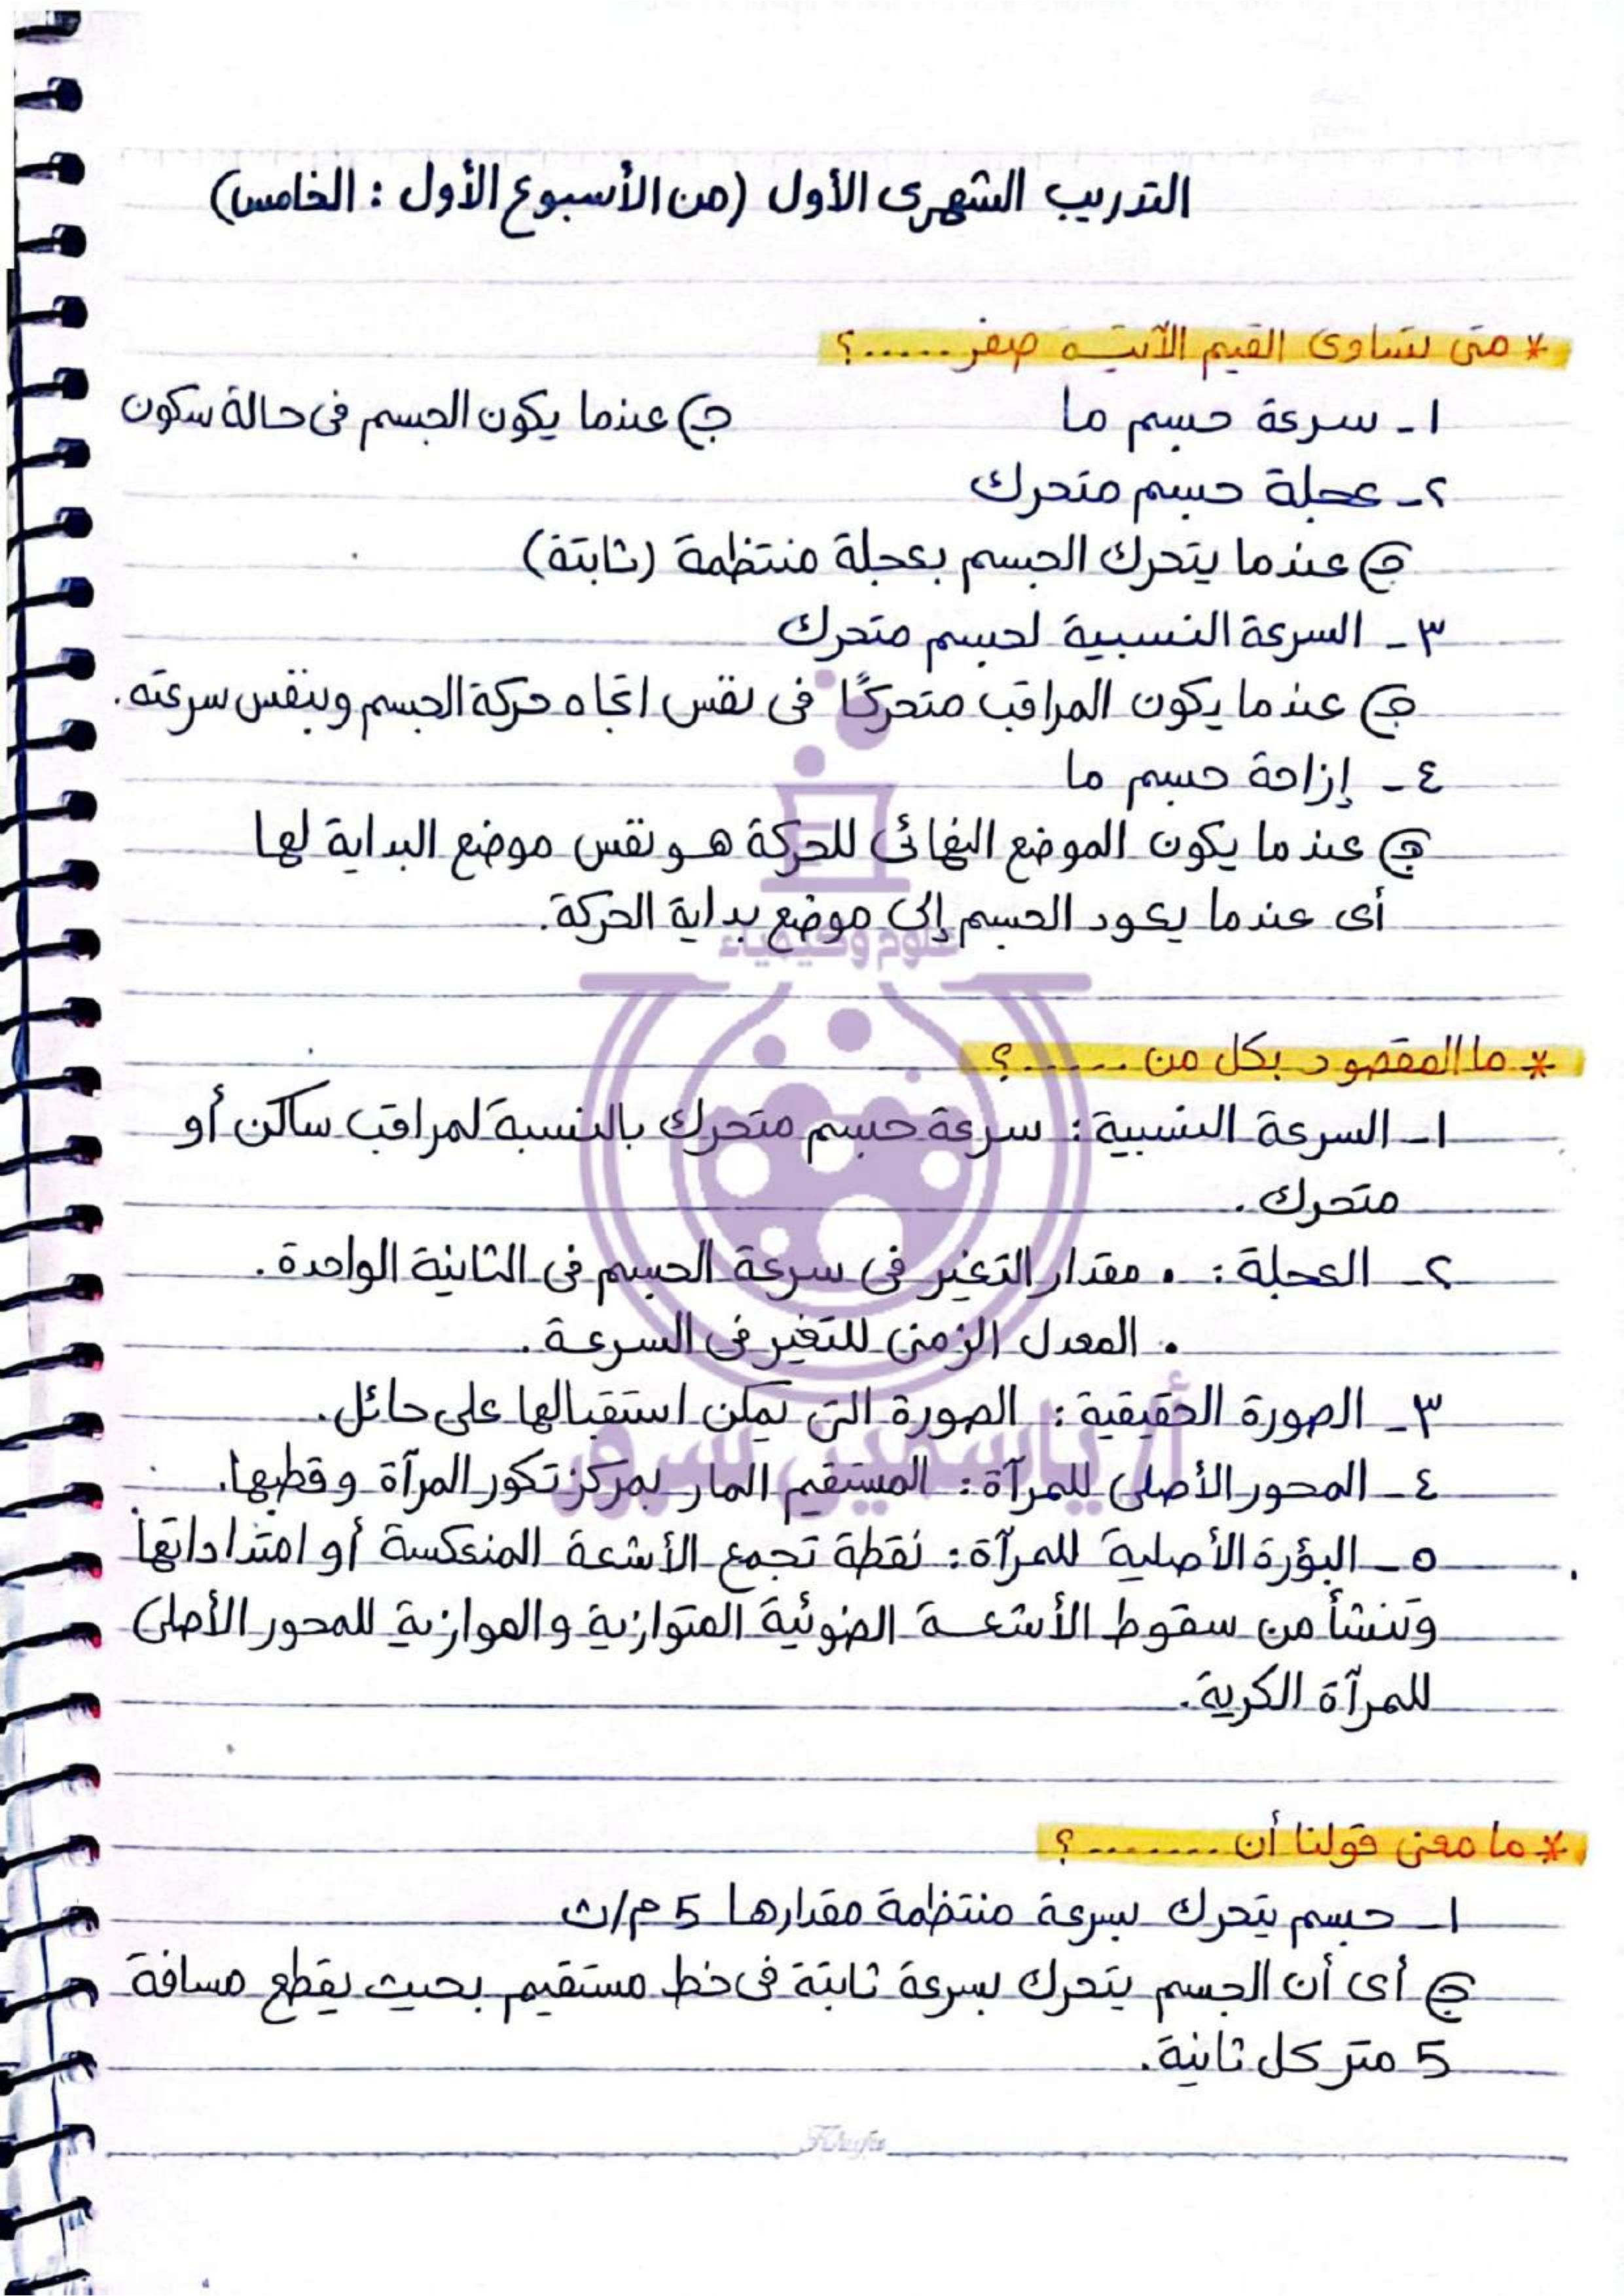 التدريب الشهرى الأول (من الأسبوع الأول : الخامس)
* متى تساوى القيم الآتية صفر .....؟
١ـ سرعة جسم ما ج) عندما يكون الجسم فى حالة سكون
٢ـ عجلة جسم متحرك
ج) عندما يتحرك الجسم بعجلة منتظمة (ثابتة)
٣ـ السرعة النسبية لجسم متحرك
ج) عندما يكون المراقب متحركًا فى نفس اتجاه حركة الجسم وبنفس سرعته.
٤ـ إزاحة جسم ما
ج) عندما يكون الموضع النهائى للحركة هو نفس موضع البداية لها
أى عندما يعود الجسم إلى موضع بداية الحركة.
علوم وكيمياء
* ما المقصود بكل من ......؟
١ـ السرعة النسبية : سرعة جسم متحرك بالنسبة لمراقب ساكن أو
متحرك.
٢ـ العجلة : • مقدار التغير فى سرعة الجسم فى الثانية الواحدة.
• المعدل الزمنى للتغير فى السرعة.
٣ـ الصورة الحقيقية : الصورة التى يمكن استقبالها على حائل.
أ/ ياسمين سرور
٤ـ المحور الأصلى للمرآة : المستقيم المار بمركز تكور المرآة وقطبها.
٥ـ البؤرة الأصلية للمرآة : نقطة تجمع الأشعة المنعكسة أو امتداداتها
وتنشأ من سقوط الأشعة الضوئية المتوازية والموازية للمحور الأصلى
للمرآة الكرية.
* ما معنى قولنا أن ........؟
١ـ جسم يتحرك بسرعة منتظمة مقدارها 5 م/ث
ج) أى أن الجسم يتحرك بسرعة ثابتة فى خط مستقيم بحيث يقطع مسافة
5 متر كل ثانية.